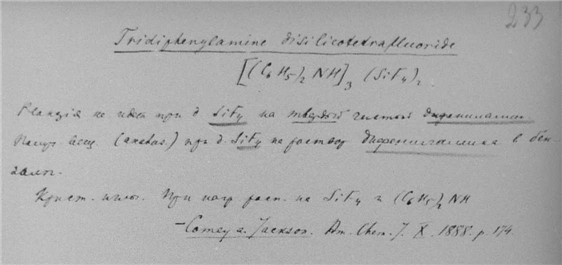 233
Tridiphenylamine disilicotetrafluoride
[(C6H5)2NH]3 (SiF4)2
Реакція не идет при д. SiF4 на твердый чистый дифениламин.
вещ. (аналог.) при д. SiF4 на раствор дифениламина в бен-
золе.
Крист. иглы. При нагр. расп. на SiF4 и (C6H5)2NH
– Comey a. Jackson. Am. Chem. J. X. 1888. p. 174.